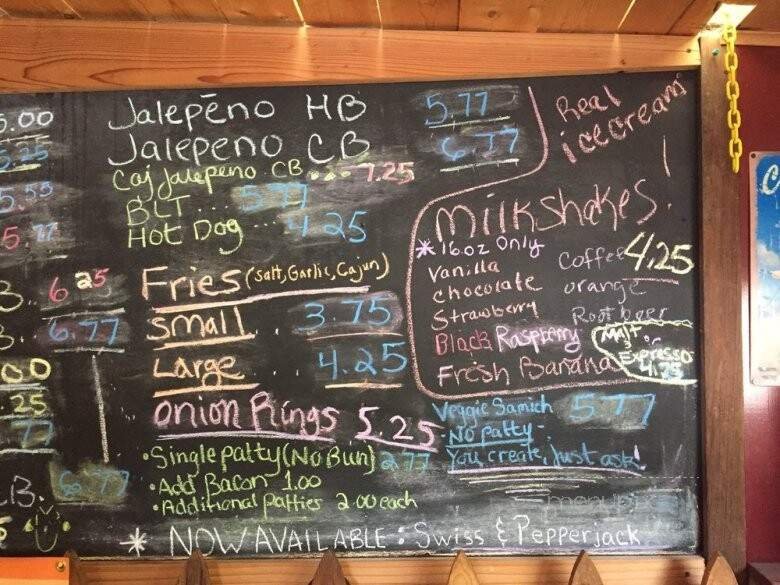 5.00
5.25
5.55
5.77
3.. 6.25
3. 6.77
.00
.25
77
.B. 6.77
Jalepēno HB 5.77
Jalepeno CB 6.77
Caj Jalapeno CB... 7.25
BLT... 5.77
Hot Dog 4.25
Fries (Salt, Garlic, Cajun)
Small.. 3.75
Large.. 4.25
Onion Rings 5.25
•Single patty (No Bun) 2.77
•Add Bacon 1.00
•Additional Patties 2.00 each
Real
icecream
Milkshakes!
*16oz Only
Vanilla
chocolate
Strawberry
Black Raspberry
Fresh Banana
Coffee 4.25
orange
Root beer
Malt
Expresso
4.75
Veggie Samich 5.77
-No patty-
You create, Just ask!
* NOW AVAILABLE: Swiss & Pepperjack